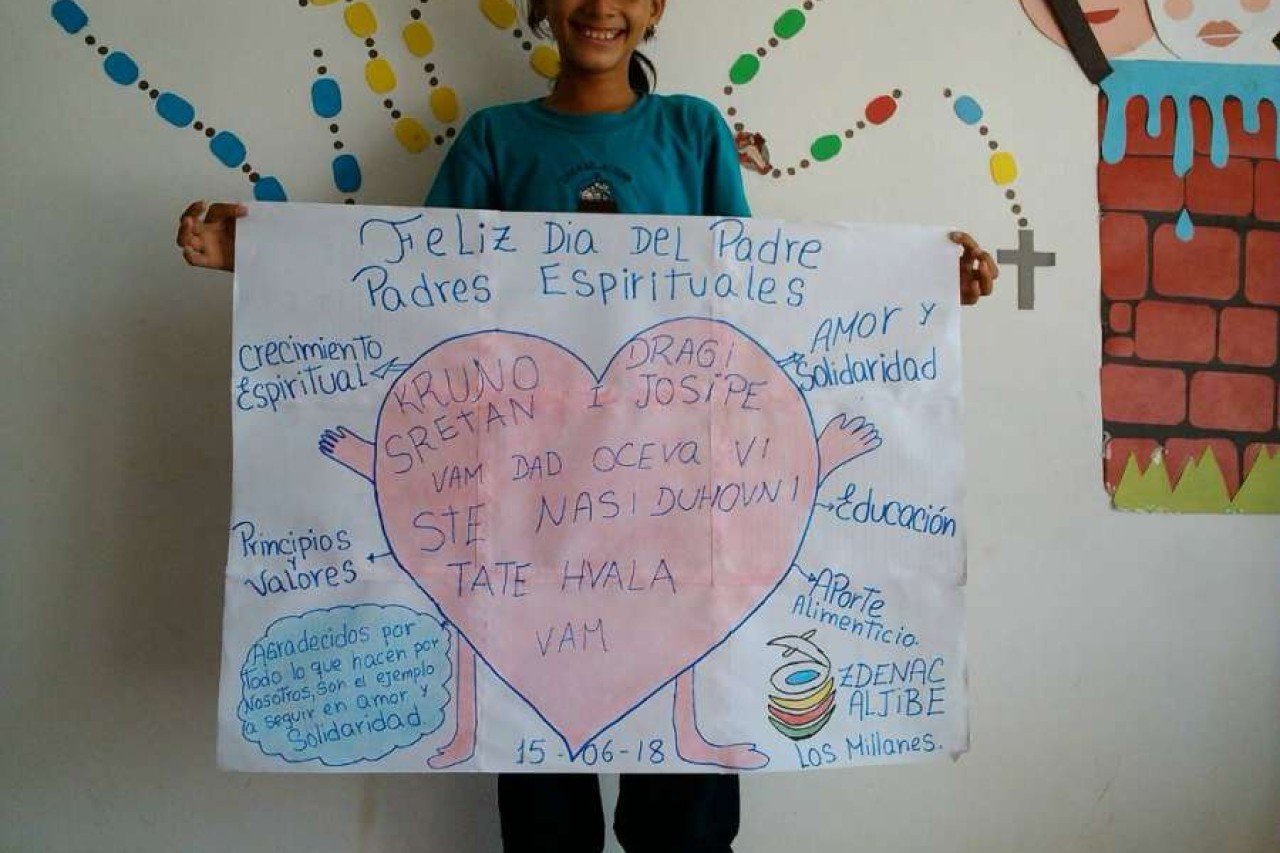 Feliz Dia Del Padre
Padres Espirituales
Crecimiento
Espiritual
AMOR Y
Solidaridad
DRAGI
KRUNO I JOSIPE
SRETAN
VAM DAD OCEVA VI
STE NASI DUHOVNI
TATE HVALA
VAM
Principios
y
Valores
Educación
APorte
Alimenticio.
Agradecidos por
todo lo que hacen por
Nosotros, son el ejemplo
a seguir en amor y
Solidaridad
ZDENAC
ALJIBE
Los Millanes.
15-06-18